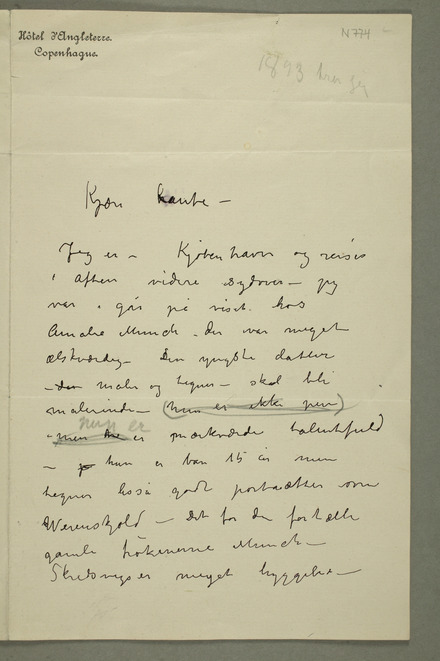 Hôtel d'Angleterre.
Copenhague.
N 774
1893
Kjære tante –
Jeg er – Kjøbenhavn og reiser
i aften videre sydover – jeg
var i går på visit hos
Amalie Munch – der var meget
elskværdig – Den yngste datter
– der maler og tegner – skal bli
malerinde – (hun er ikke pen)
hun er
– men er mærkværdig talentfuld
– hun er bare 15 år men
tegner lisså godt portrætter som
Werenskjold – Det får du fortælle
gamle frøkenerne Munch –
meget hyggelig –